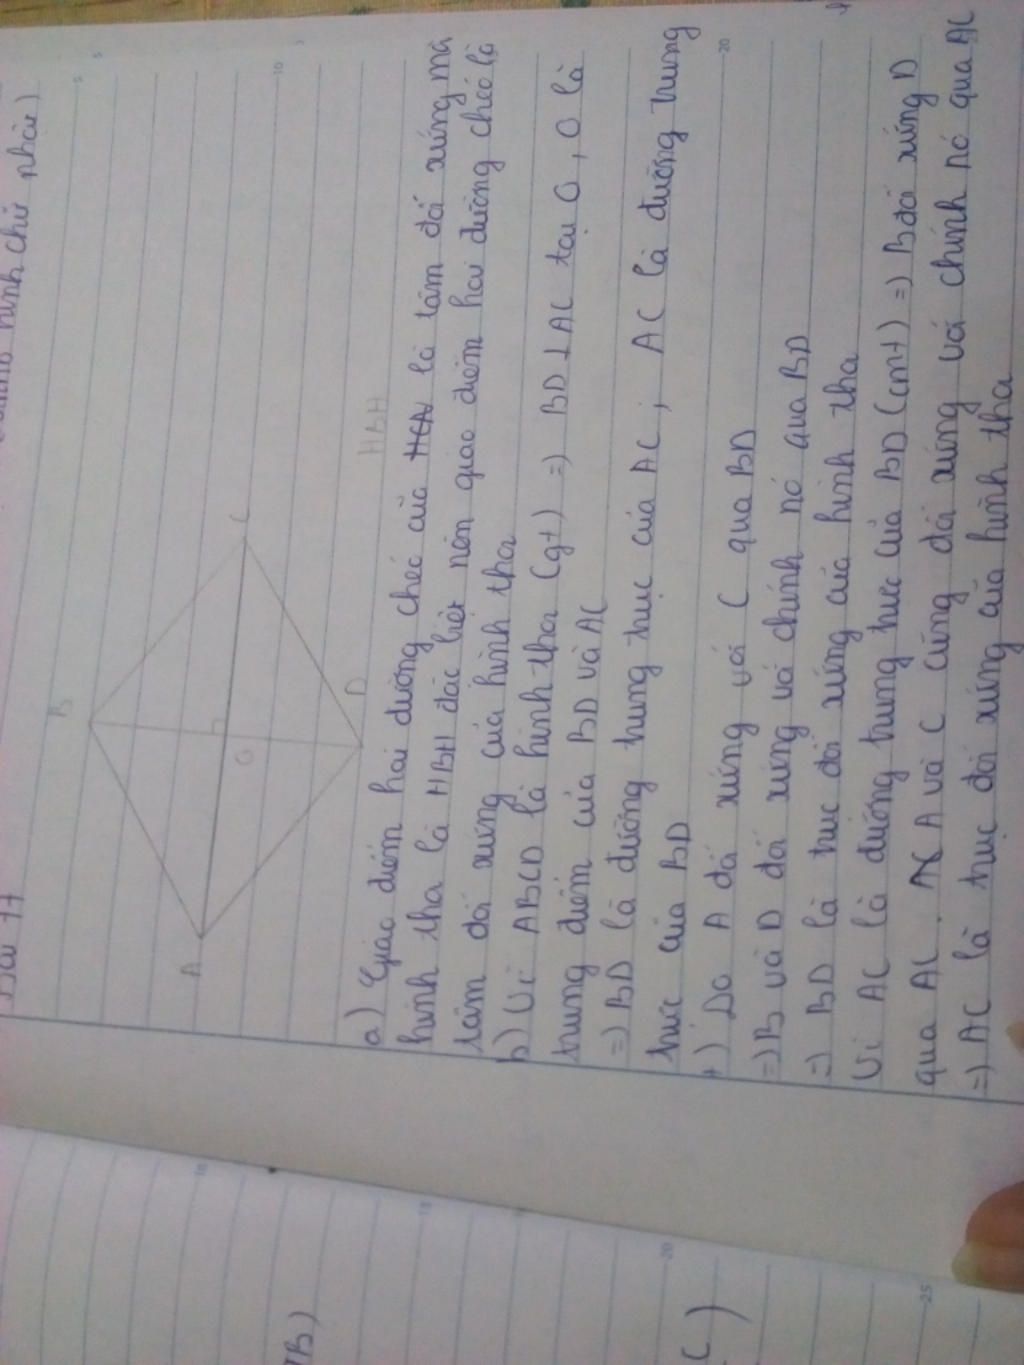 Bài 77
hình chữ nhật)
B
A
C
O
D
HBH
a) Giao điểm hai đường chéo của là tâm đối xứng mà
hình thoi là HBH đặc biệt nên giao điểm hai đường chéo là
tâm đối xứng của hình thoi
b) Vì ABCD là hình thoi (gt) => BD ⊥ AC tại O, O là
trung điểm của BD và AC
=) BD là đường trung trực của AC; AC là đường trung
trực của BD
+) Do A đối xứng với C qua BD
=) B và D đối xứng với chính nó qua BD
=) BD là trục đối xứng của hình thoi
Vì AC là đường trung trực của BD (cmt) =) B đối xứng D
qua AC. A và C cũng đối xứng với chính nó qua AC
=) AC là trục đối xứng của hình thoi